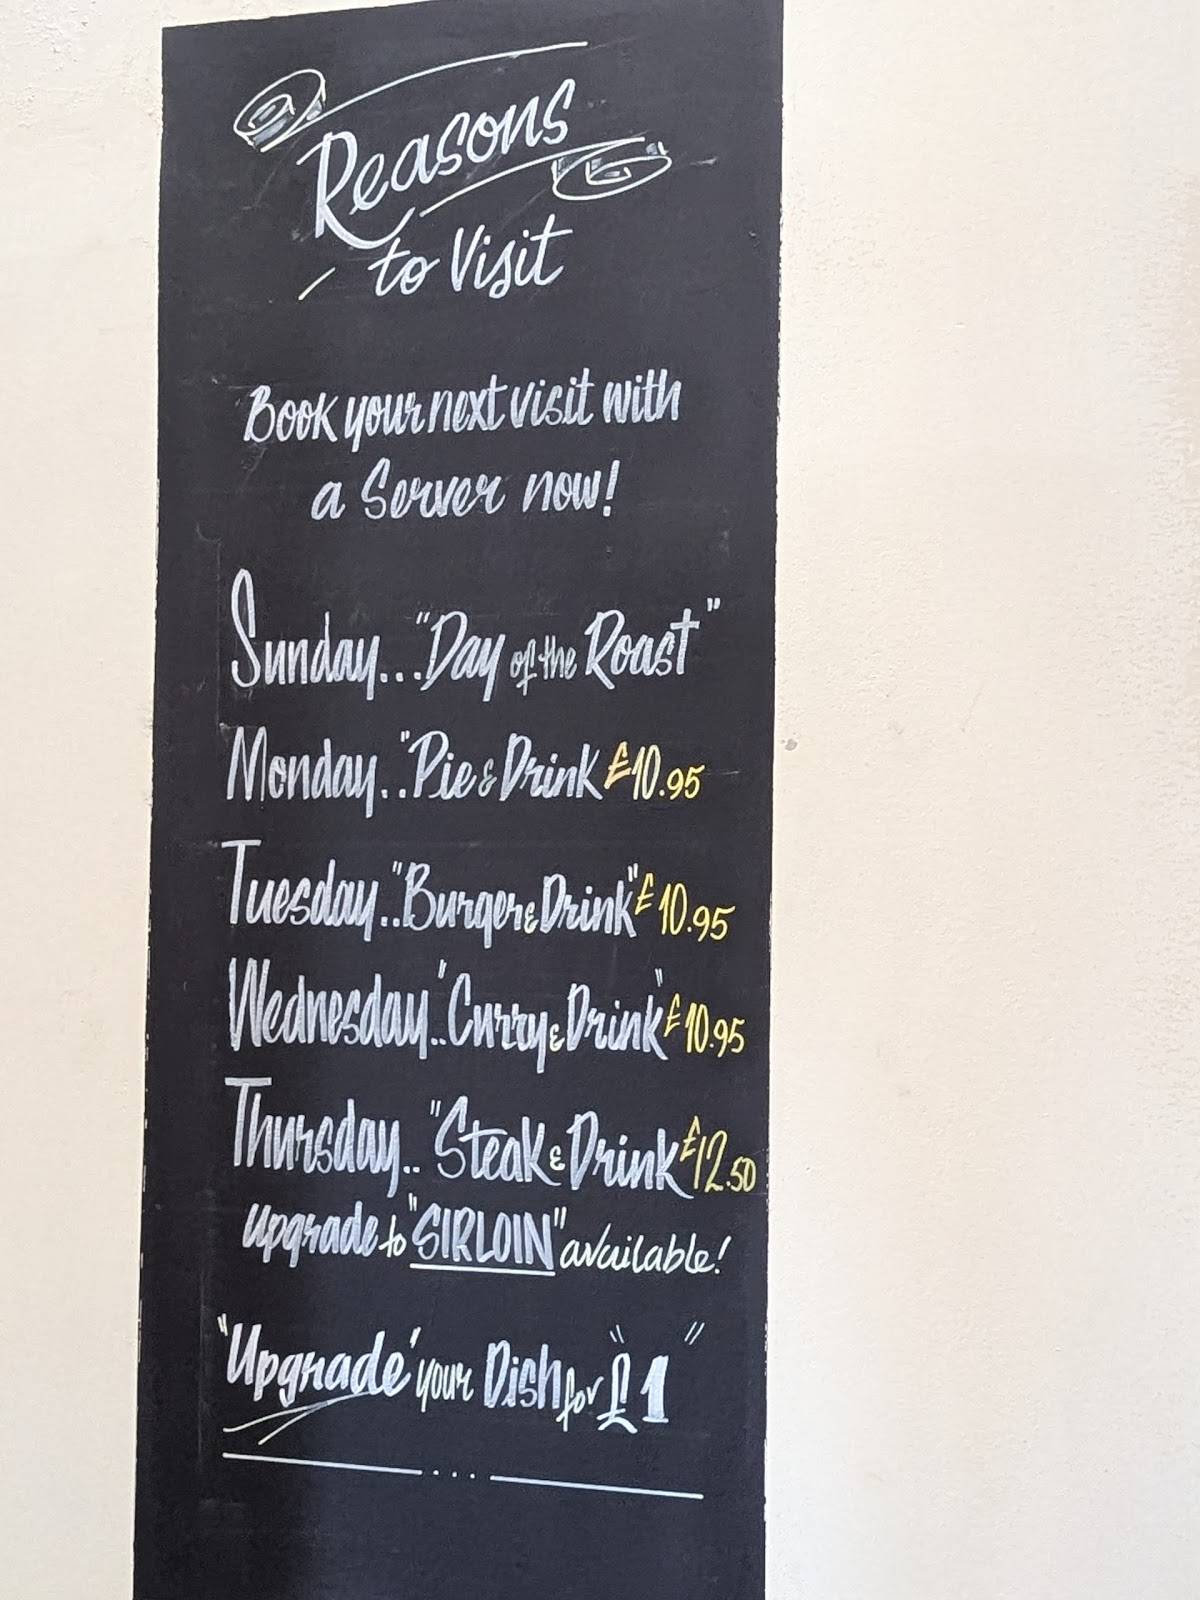 Reasons
to Visit
Book your next visit with
a Server now!
Sunday..."Day of the Roast"
Monday.."Pie & Drink £10.95
Tuesday.."Burger & Drink" £10.95
Wednesday.."Curry & Drink" £10.95
Thursday.. "Steak & Drink £12.50
upgrade to "SIRLOIN" available!
"Upgrade' your Dish for "£1"